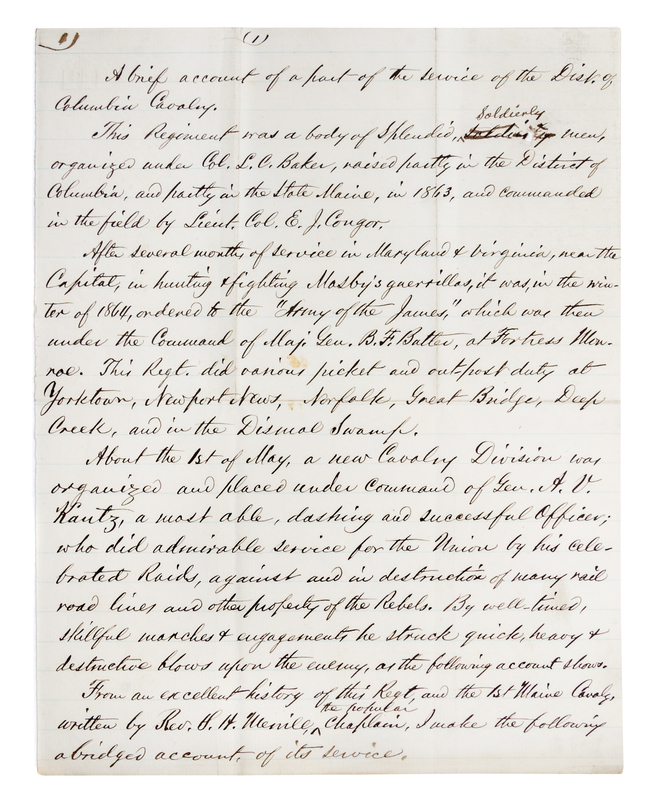 1) (1)
A brief account of a part of the service of the Dist. of
Columbia Cavalry.
Soldierly
This Regiment was a body of splendid, ^ men,
organized under Col. L. C. Baker, raised partly in the District of
Columbia, and partly in the State Maine, in 1863, and commanded
in the field by Lieut. Col. E. J. Congor.
After several months of service in Maryland & Virginia, near the
Capital, in hunting & fighting Mosby's guerrillas, it was, in the win-
ter of 1864, ordered to the "Army of the James," which was then
under the Command of Maj. Gen. B. F. Butler, at Fortress Mon-
roe. This Regt. did various picket and outpost duty at
Yorktown, Newport News, Norfolk, Great Bridge, Deep
Creek, and in the Dismal Swamp.
About the 1st of May, a new Cavalry Division was
organized and placed under command of Gen. A. V.
Kautz, a most able, dashing and successful Officer;
who did admirable service for the Union by his cele-
brated Raids, against and in destruction of many rail
road lines and other property of the Rebels. By well-timed,
skillful marches & engagements he struck quick, heavy &
destructive blows upon the enemy, as the following account shows.
From an excellent history of this Regt. and the 1st Maine Cavalry,
the popular
written by Rev. S. H. Merrill, ^ Chaplain, I make the following
abridged account, of its service.